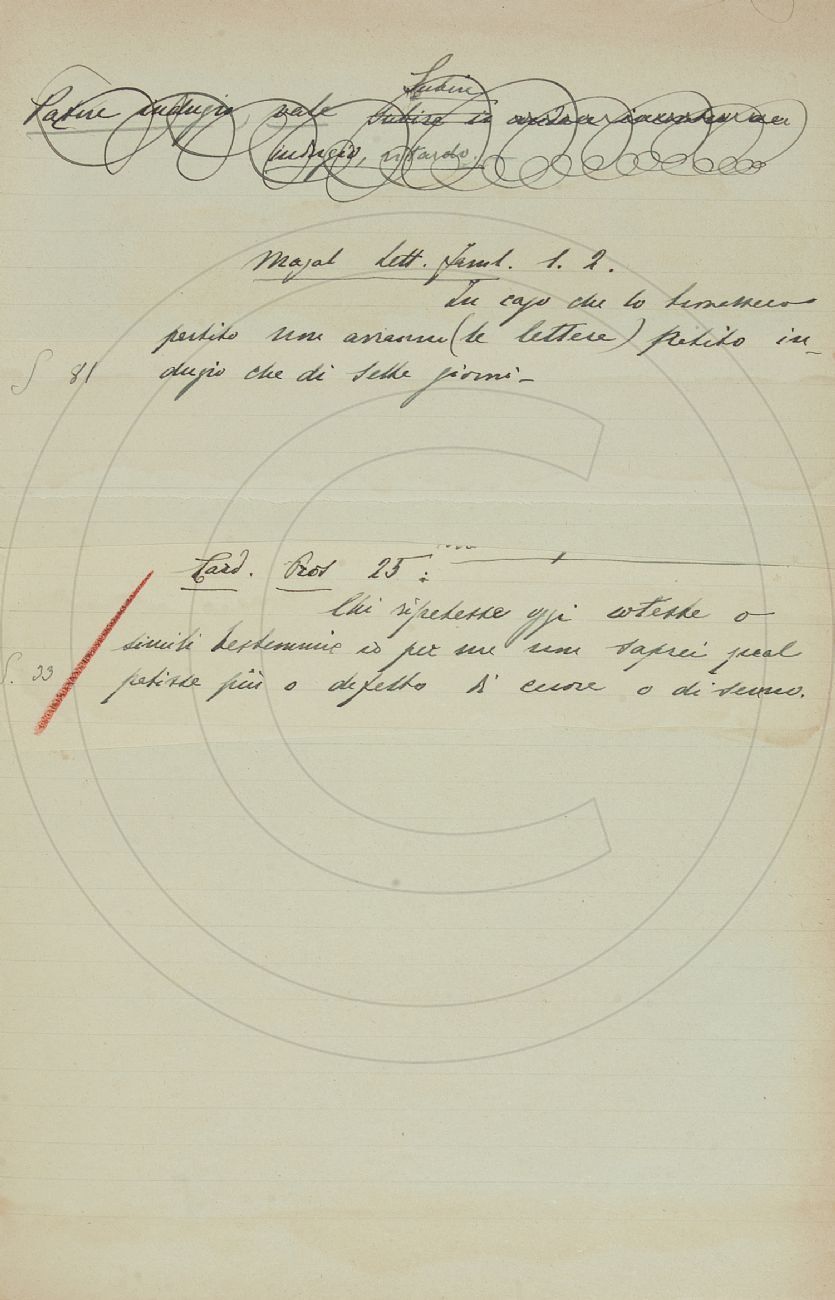 Subire
Patire indugio, vale Subire
indugio, ritardo.
Magal Lett. Faml. 1. 2.
In caso che lo
partito non avranno (le lettere) patito in-
§ 81 dugio che di sette giorni -
Card. Pros 25:
Chi ripetesse oggi coteste o
simili bestemmie io per me non saprei qual
§. 33 patisse più o difetto di cuore o di senno.